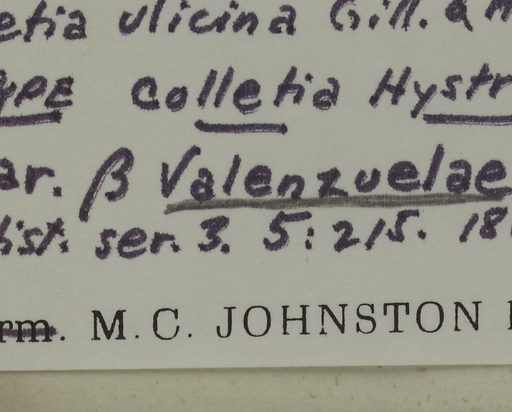 etia ulicina Gill. &
ype Colletia Hystr
ar. β Valenzuelae
hist. ser. 3. 5:215. 18
rm. M.C. JOHNSTON